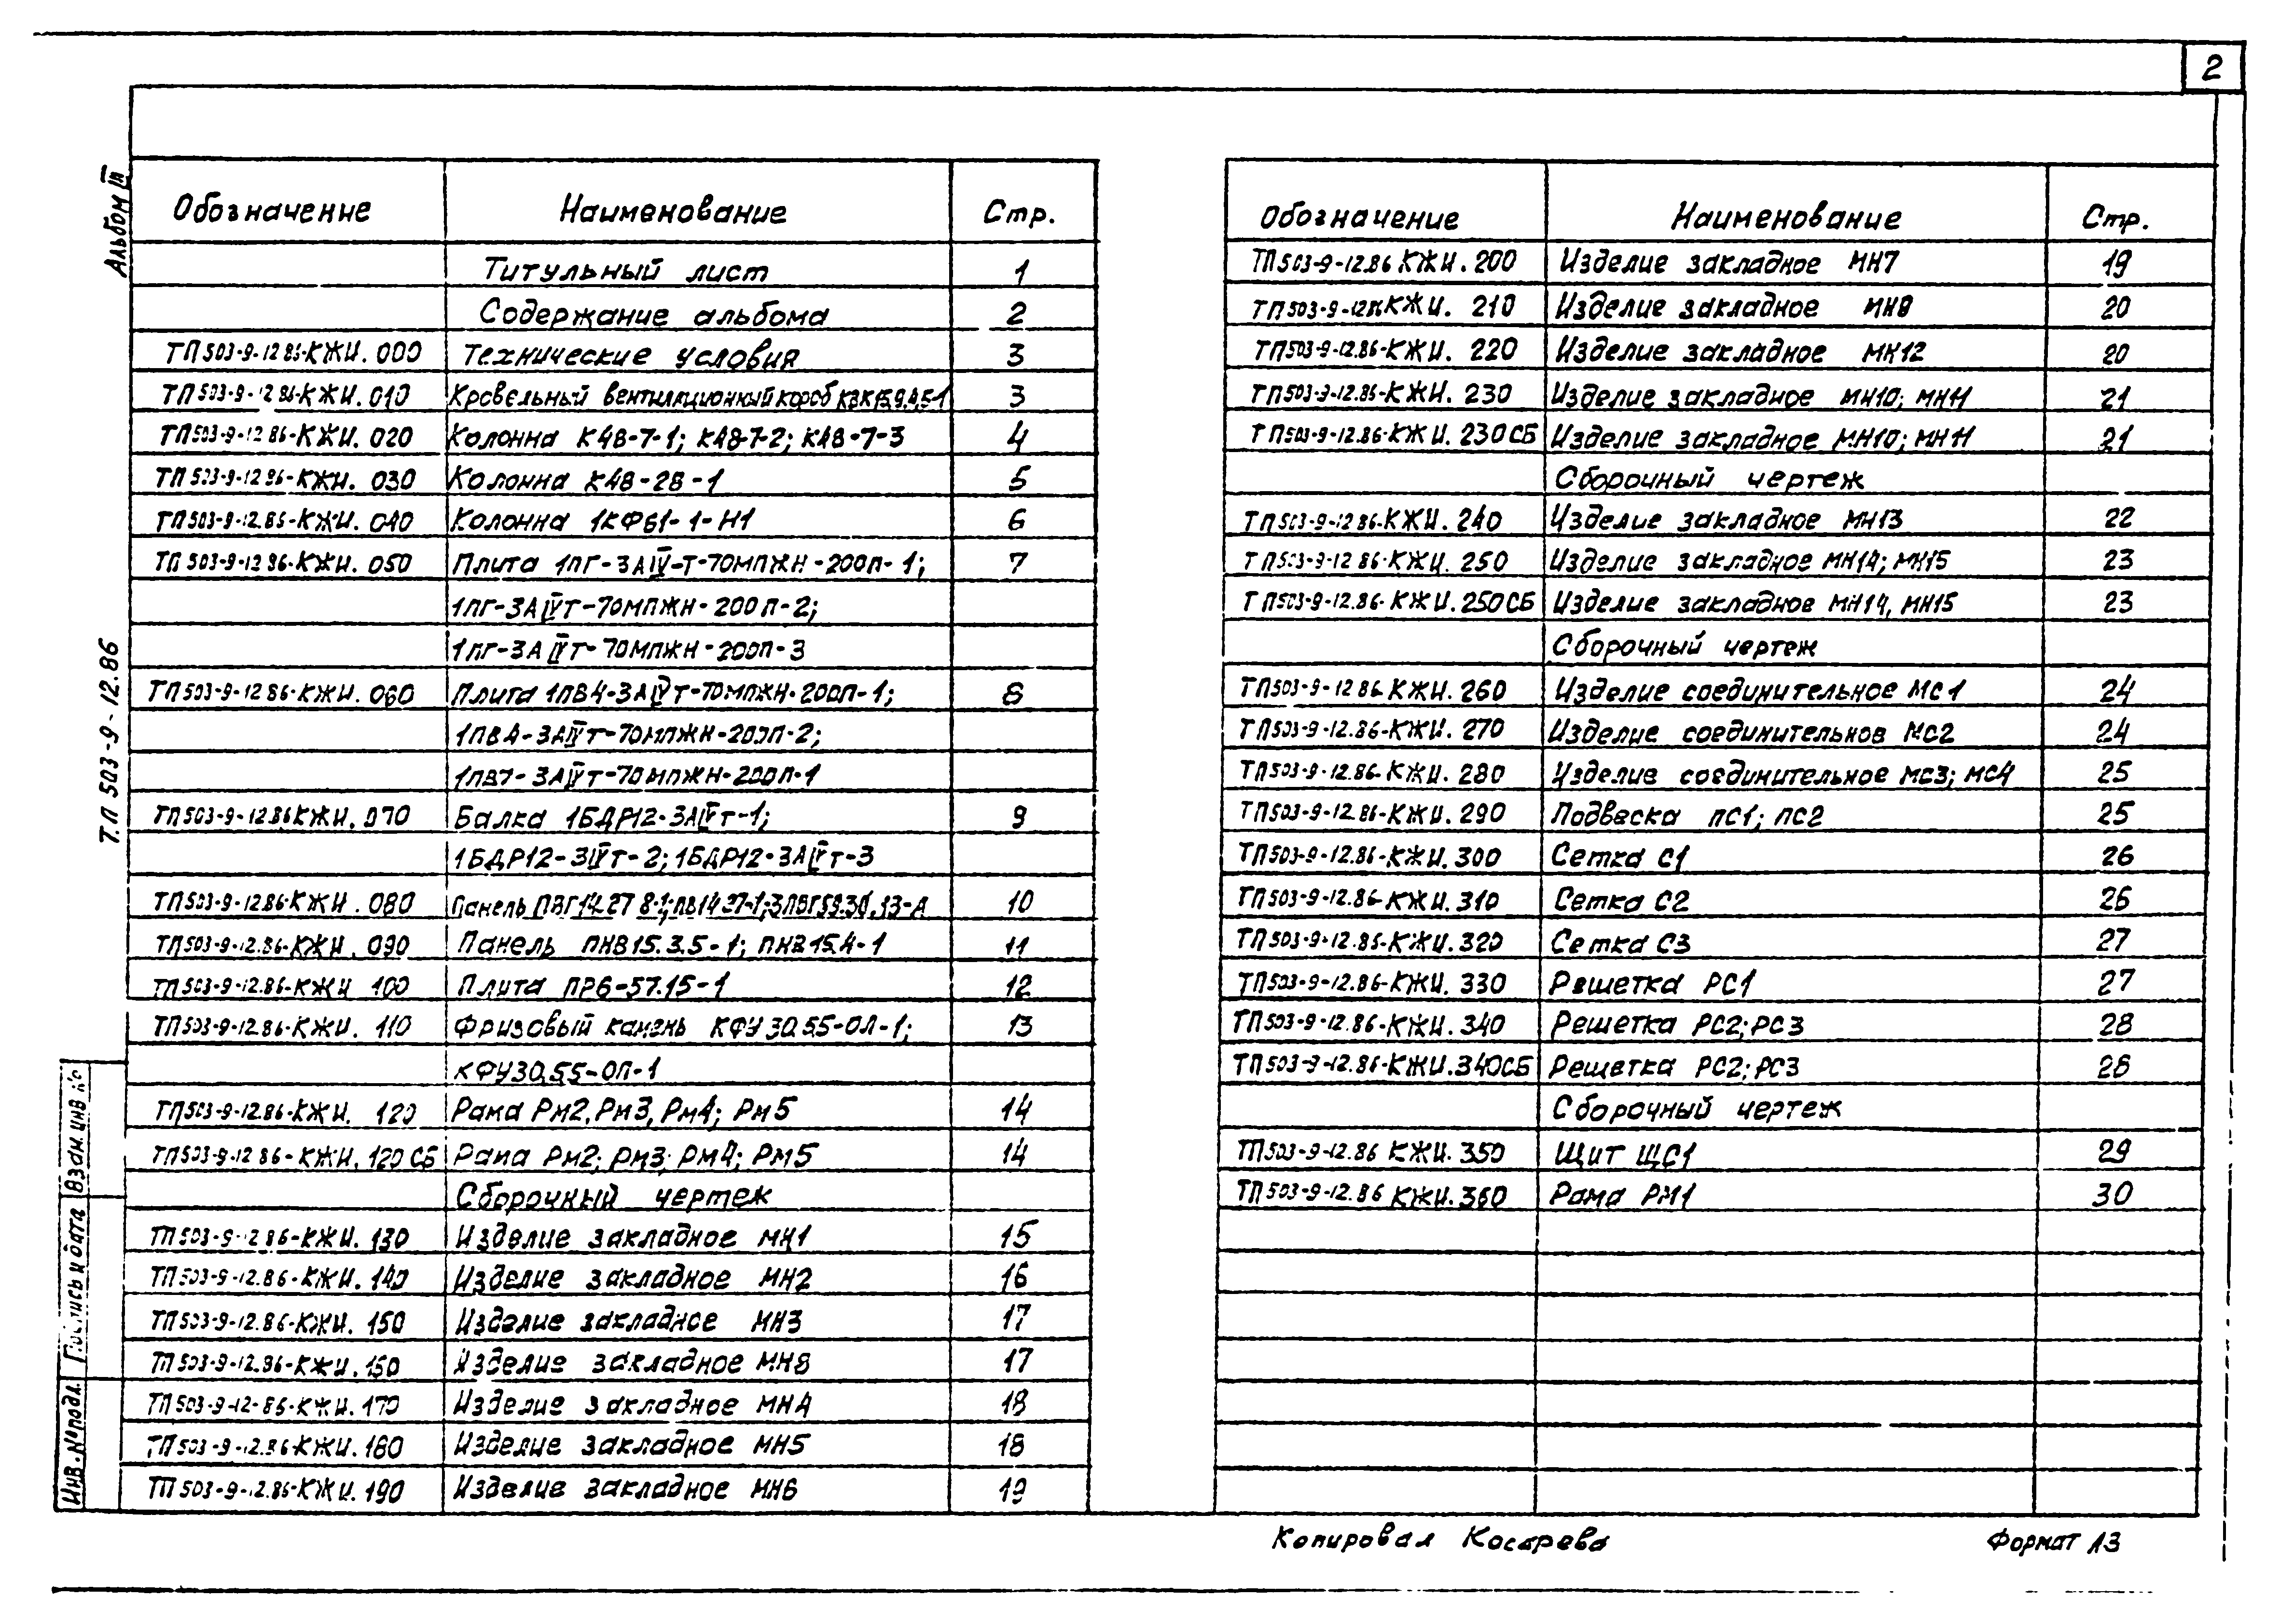 2
Альбом III
Т.П 503-9-12.86
Обозначение Наименование Стр.
Титульный лист 1
Содержание альбома 2
ТП503-9-12.86-КЖИ.000 Технические условия 3
ТП503-9-12.86-КЖИ.010 Кровельный вентиляционный короб 3
ТП503-9-12.86-КЖИ.020 Колонна К48-7-1; К48-7-2; К48-7-3 4
ТП503-9-12.86-КЖИ.030 Колонна К48-28-1 5
ТП503-9-12.86-КЖИ.040 Колонна 1КФ61-1-Н1 6
ТП503-9-12.86-КЖИ.050 Плита 1ПГ-3АIVТ-70МПЖН-200П-1; 7
1ПГ-3АIVТ-70МПЖН-200П-2;
1ПГ-3АIVТ-70МПЖН-200П-3
ТП503-9-12.86-КЖИ.060 Плита 1ПВ4-3АIVТ-70МПЖН-200П-1; 8
1ПВ4-3АIVТ-70МПЖН-200П-2;
1ПВ7-3АIVТ-70МПЖН-200П-1
ТП503-9-12.86КЖИ.070 Балка 1БДР12-3АIVТ-1; 9
1БДР12-3IVТ-2; 1БДР12-3АIVТ-3
ТП503-9-12.86-КЖИ.080 Панель 10
ТП503-9-12.86-КЖИ.090 Панель ПНВ15.3.5-1; ПНВ15.4-1 11
ТП503-9-12.86-КЖИ 100 Плита ПР6-57.15-1 12
ТП503-9-12.86-КЖИ.110 Фризовый камень КФУ30.55-ОЛ-1; 13
КФУ30.55-ОП-1
ТП503-9-12.86-КЖИ.120 Рама РМ2, РМ3, РМ4; РМ5 14
ТП503-9-12.86-КЖИ.120 СБ Рама РМ2; РМ3; РМ4; РМ5 14
Сборочный чертеж
ТП503-9-12.86-КЖИ.130 Изделие закладное МН1 15
ТП503-9-12.86-КЖИ.140 Изделие закладное МН2 16
ТП503-9-12.86-КЖИ.150 Изделие закладное МН3 17
ТП503-9-12.86-КЖИ.160 Изделие закладное МН8 17
ТП503-9-12-86-КЖИ.170 Изделие закладное МН4 18
ТП503-9-12.86КЖИ.180 Изделие закладное МН5 18
ТП503-9-12.86-КЖИ.190 Изделие закладное МН6 19
Обозначение Наименование Стр.
ТП503-9-12.86 КЖИ.200 Изделие закладное МН7 19
ТП503-9-12.86КЖИ.210 Изделие закладное МН9 20
ТП503-9-12.86-КЖИ.220 Изделие закладное МН12 20
ТП503-9-12.86-КЖИ.230 Изделие закладное МН10; МН11 21
ТП503-9-12.86-КЖИ.230СБ Изделие закладное МН10; МН11 21
Сборочный чертеж
ТП503-9-12.86-КЖИ.240 Изделие закладное МН13 22
ТП503-9-12.86-КЖИ.250 Изделие закладное МН14; МН15 23
ТП503-9-12.86-КЖИ.250СБ Изделие закладное МН14, МН15 23
Сборочный чертеж
ТП503-9-12.86 КЖИ.260 Изделие соединительное МС1 24
ТП503-9-12.86-КЖИ.270 Изделие соединительное МС2 24
ТП503-9-12.86-КЖИ.280 Изделие соединительное МС3; МС4 25
ТП503-9-12.86-КЖИ.290 Подвеска ПС1; ПС2 25
ТП503-9-12.86-КЖИ.300 Сетка С1 26
ТП503-9-12.86-КЖИ.310 Сетка С2 26
ТП503-9-12.86-КЖИ.320 Сетка С3 27
ТП503-9-12.86-КЖИ.330 Решетка РС1 27
ТП503-9-12.86-КЖИ.340 Решетка РС2; РС3 28
ТП503-9-12.86-КЖИ.340СБ Решетка РС2; РС3 28
Сборочный чертеж
ТП503-9-12.86 КЖИ.350 Щит ЩС1 29
ТП503-9-12.86 КЖИ.360 Рама РМ1 30
Взам.инв №
Подпись и дата
Инв.№ подл.
Копировал Косарева
Формат А3